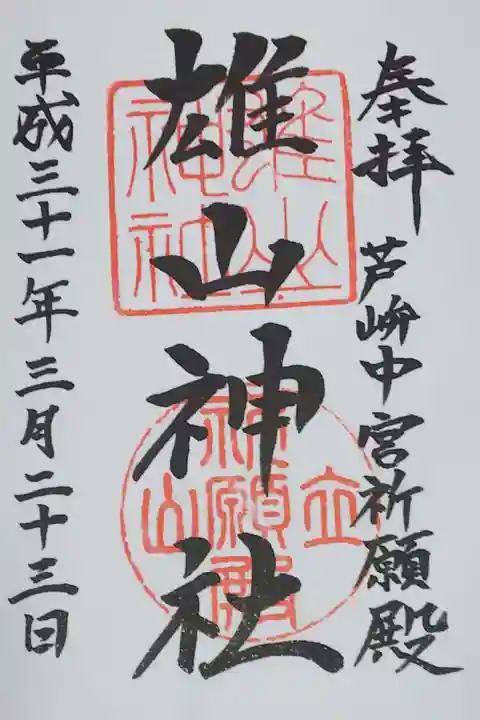 奉拝
芦峅中宮祈願殿
雄山神社
雄山神社
立山
祈願殿
平成三十一年三月二十三日